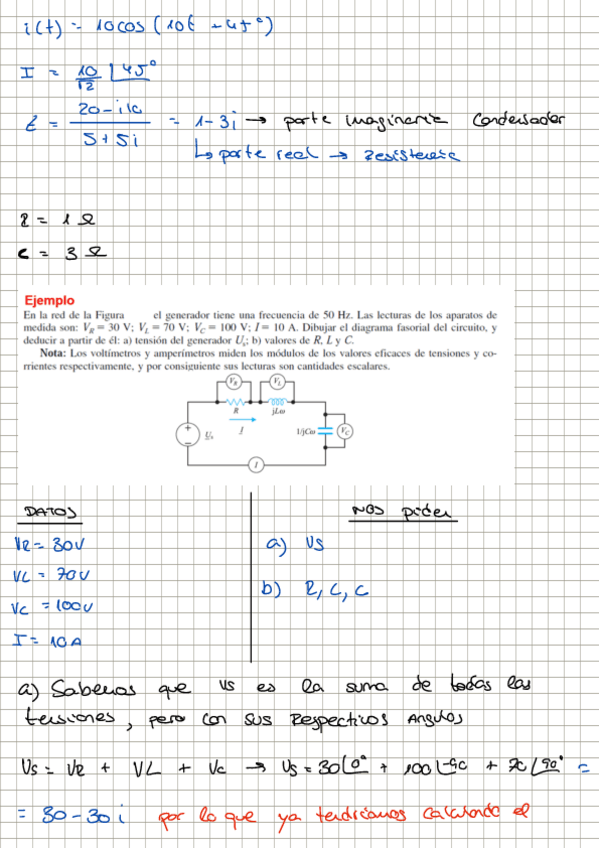 i(t) = 10cos(10t - 45º)
I = 10/√2 ∠45º
= 1-3i → parte imaginaria Condensador
5+5i
↳ parte real → Resistencia
R = 1 Ω
C = 3 Ω
Ejemplo
En la red de la Figura el generador tiene una frecuencia de 50 Hz. Las lecturas de los aparatos de
medida son: V_R = 30 V; V_L = 70 V; V_C = 100 V; I = 10 A. Dibujar el diagrama fasorial del circuito, y
deducir a partir de él: a) tensión del generador U_s; b) valores de R, L y C.
Nota: Los voltímetros y amperímetros miden los módulos de los valores eficaces de tensiones y co-
rrientes respectivamente, y por consiguiente sus lecturas son cantidades escalares.
V_R V_L
R jLω
+ U_s I 1/jCω V_C
−
I
DATOS NOS piden
VR = 30V a) VS
VL = 70V b) R, L, C
VC = 100V
I = 10A
a) Sabemos que VS es la suma de todas las
tensiones, pero con sus Respectivos Angulos
VS = VR + VL + VC → VS = 30∠0º + 100∠-90 + 70∠90º =
= 30-30i por lo que ya tendriamos calculando el